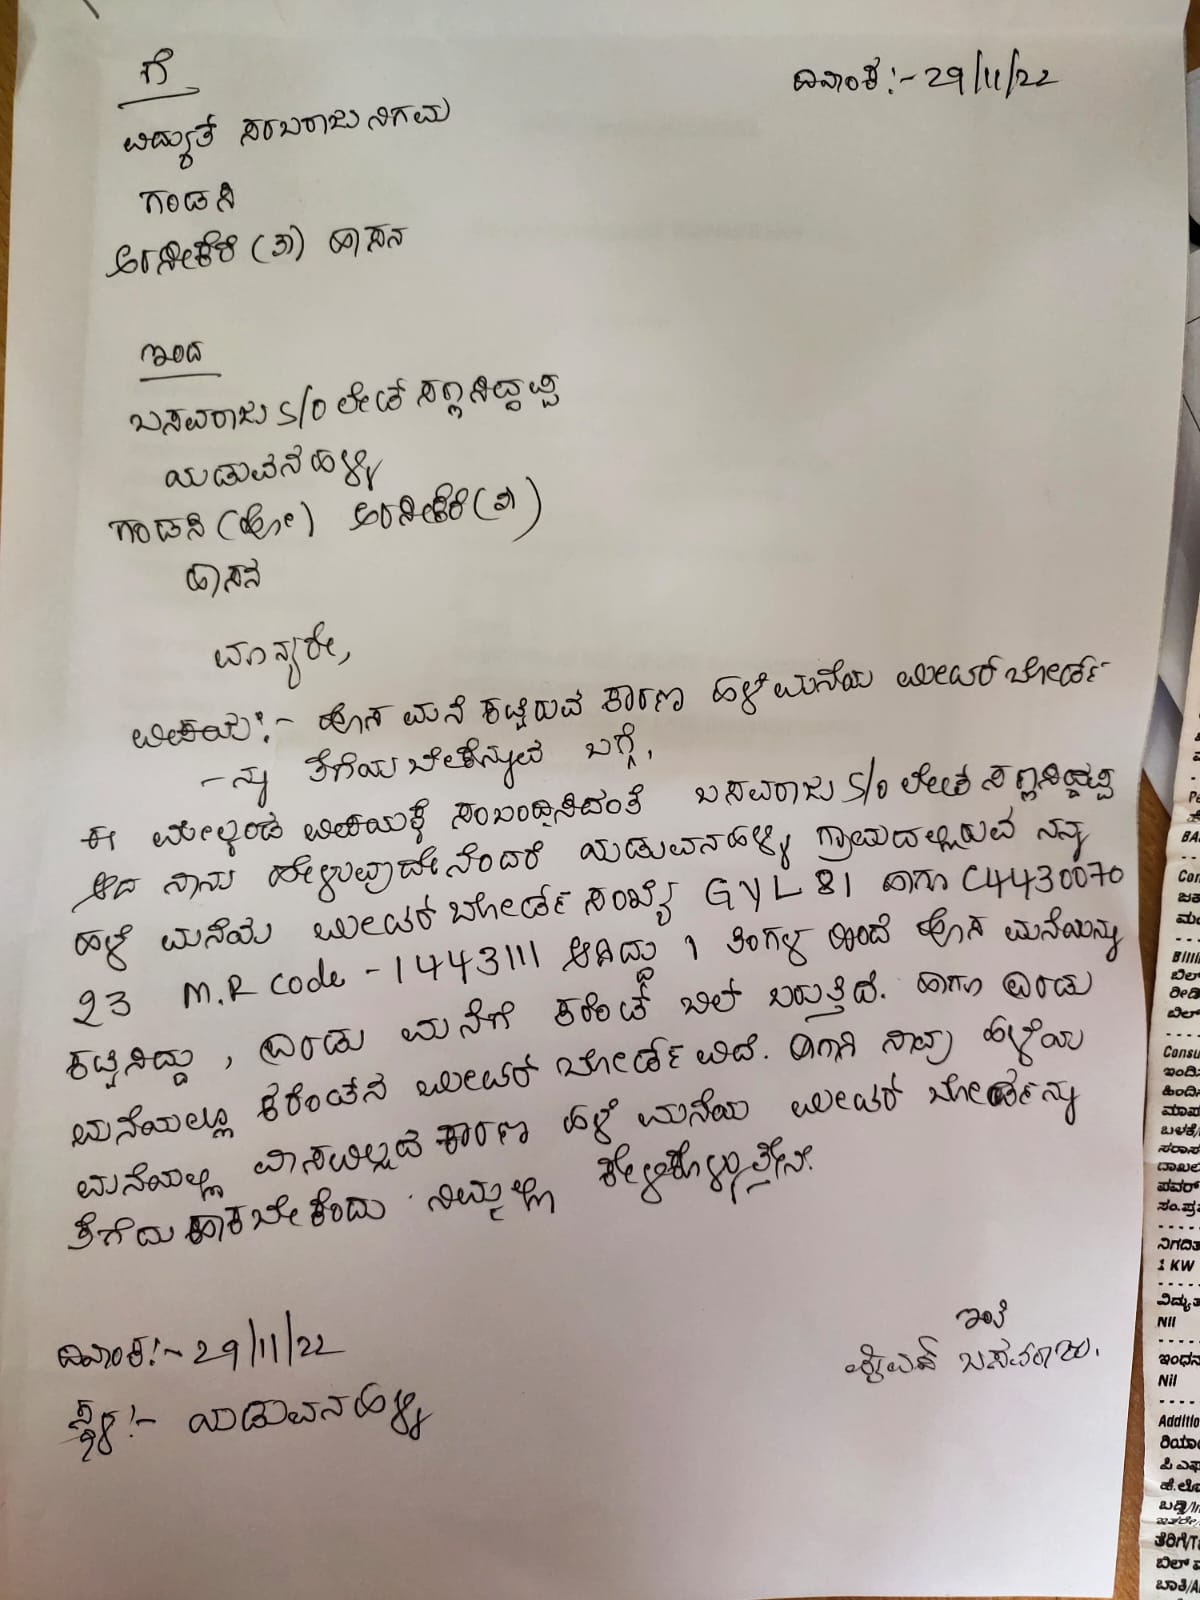 ಗೆ
ದಿನಾಂಕ:- 29/11/22
ವಿದ್ಯುತ್ ಸರಬರಾಜು ನಿಗಮ
ಗಂಡಸಿ
ಅರಸೀಕೆರೆ (ತಾ) ಹಾಸನ
ಇಂದ
ಬಸವರಾಜು S/O ಲೇಟ್ ಸಣ್ಣಸಿದ್ದಪ್ಪ
ಯಡುವನಹಳ್ಳಿ
ಗಂಡಸಿ (ಹೋ) ಅರಸೀಕೆರೆ (ತಾ)
ಹಾಸನ
ಮಾನ್ಯರೇ,
ವಿಷಯ:- ಹೊಸ ಮನೆ ಕಟ್ಟಿರುವ ಕಾರಣ ಹಳೆ ಮನೆಯ ಮೀಟರ್ ಬೋರ್ಡ್
-ನ್ನು ತೆಗೆಯಬೇಕೆನ್ನುವ ಬಗ್ಗೆ,
ಈ ಮೇಲ್ಕಂಡ ವಿಷಯಕ್ಕೆ ಸಂಬಂಧಿಸಿದಂತೆ ಬಸವರಾಜು S/O ಲೇಟ್ ಸಣ್ಣಸಿದ್ದಪ್ಪ
ಆದ ನಾನು ಹೇಳುವುದೇನೆಂದರೆ ಯಡುವನಹಳ್ಳಿ ಗ್ರಾಮದಲ್ಲಿರುವ ನನ್ನ
ಹಳೆ ಮನೆಯ ಮೀಟರ್ ಬೋರ್ಡ್ ಸಂಖ್ಯೆ GYL 81 ಹಾಗೂ C4430070
23 M.R Code - 1443111 ಆಗಿದ್ದು 1 ತಿಂಗಳ ಹಿಂದೆ ಹೊಸ ಮನೆಯನ್ನು
ಕಟ್ಟಿಸಿದ್ದು, ಎರಡು ಮನೆಗೆ ಕರೆಂಟ್ ಬಿಲ್ ಬರುತ್ತಿದೆ. ಹಾಗೂ ಎರಡು
ಮನೆಯಲ್ಲೂ ಕರೆಂಟಿನ ಮೀಟರ್ ಬೋರ್ಡ್ ವಿದೆ. ಹೀಗಾಗಿ ನಾವು ಹಳೆಯ
ಮನೆಯಲ್ಲಿ ವಾಸವಿಲ್ಲದ ಕಾರಣ ಹಳೆ ಮನೆಯ ಮೀಟರ್ ಬೋರ್ಡನ್ನು
ತೆಗೆದು ಹಾಕಬೇಕೆಂದು ನಿಮ್ಮಲ್ಲಿ ಕೇಳಿಕೊಳ್ಳುತ್ತೇನೆ.
ದಿನಾಂಕ:- 29/11/22
ಸ್ಥಳ:- ಯಡುವನಹಳ್ಳಿ
ಇಂತಿ
ಬಸವರಾಜು.
1 KW
Nil
Nil